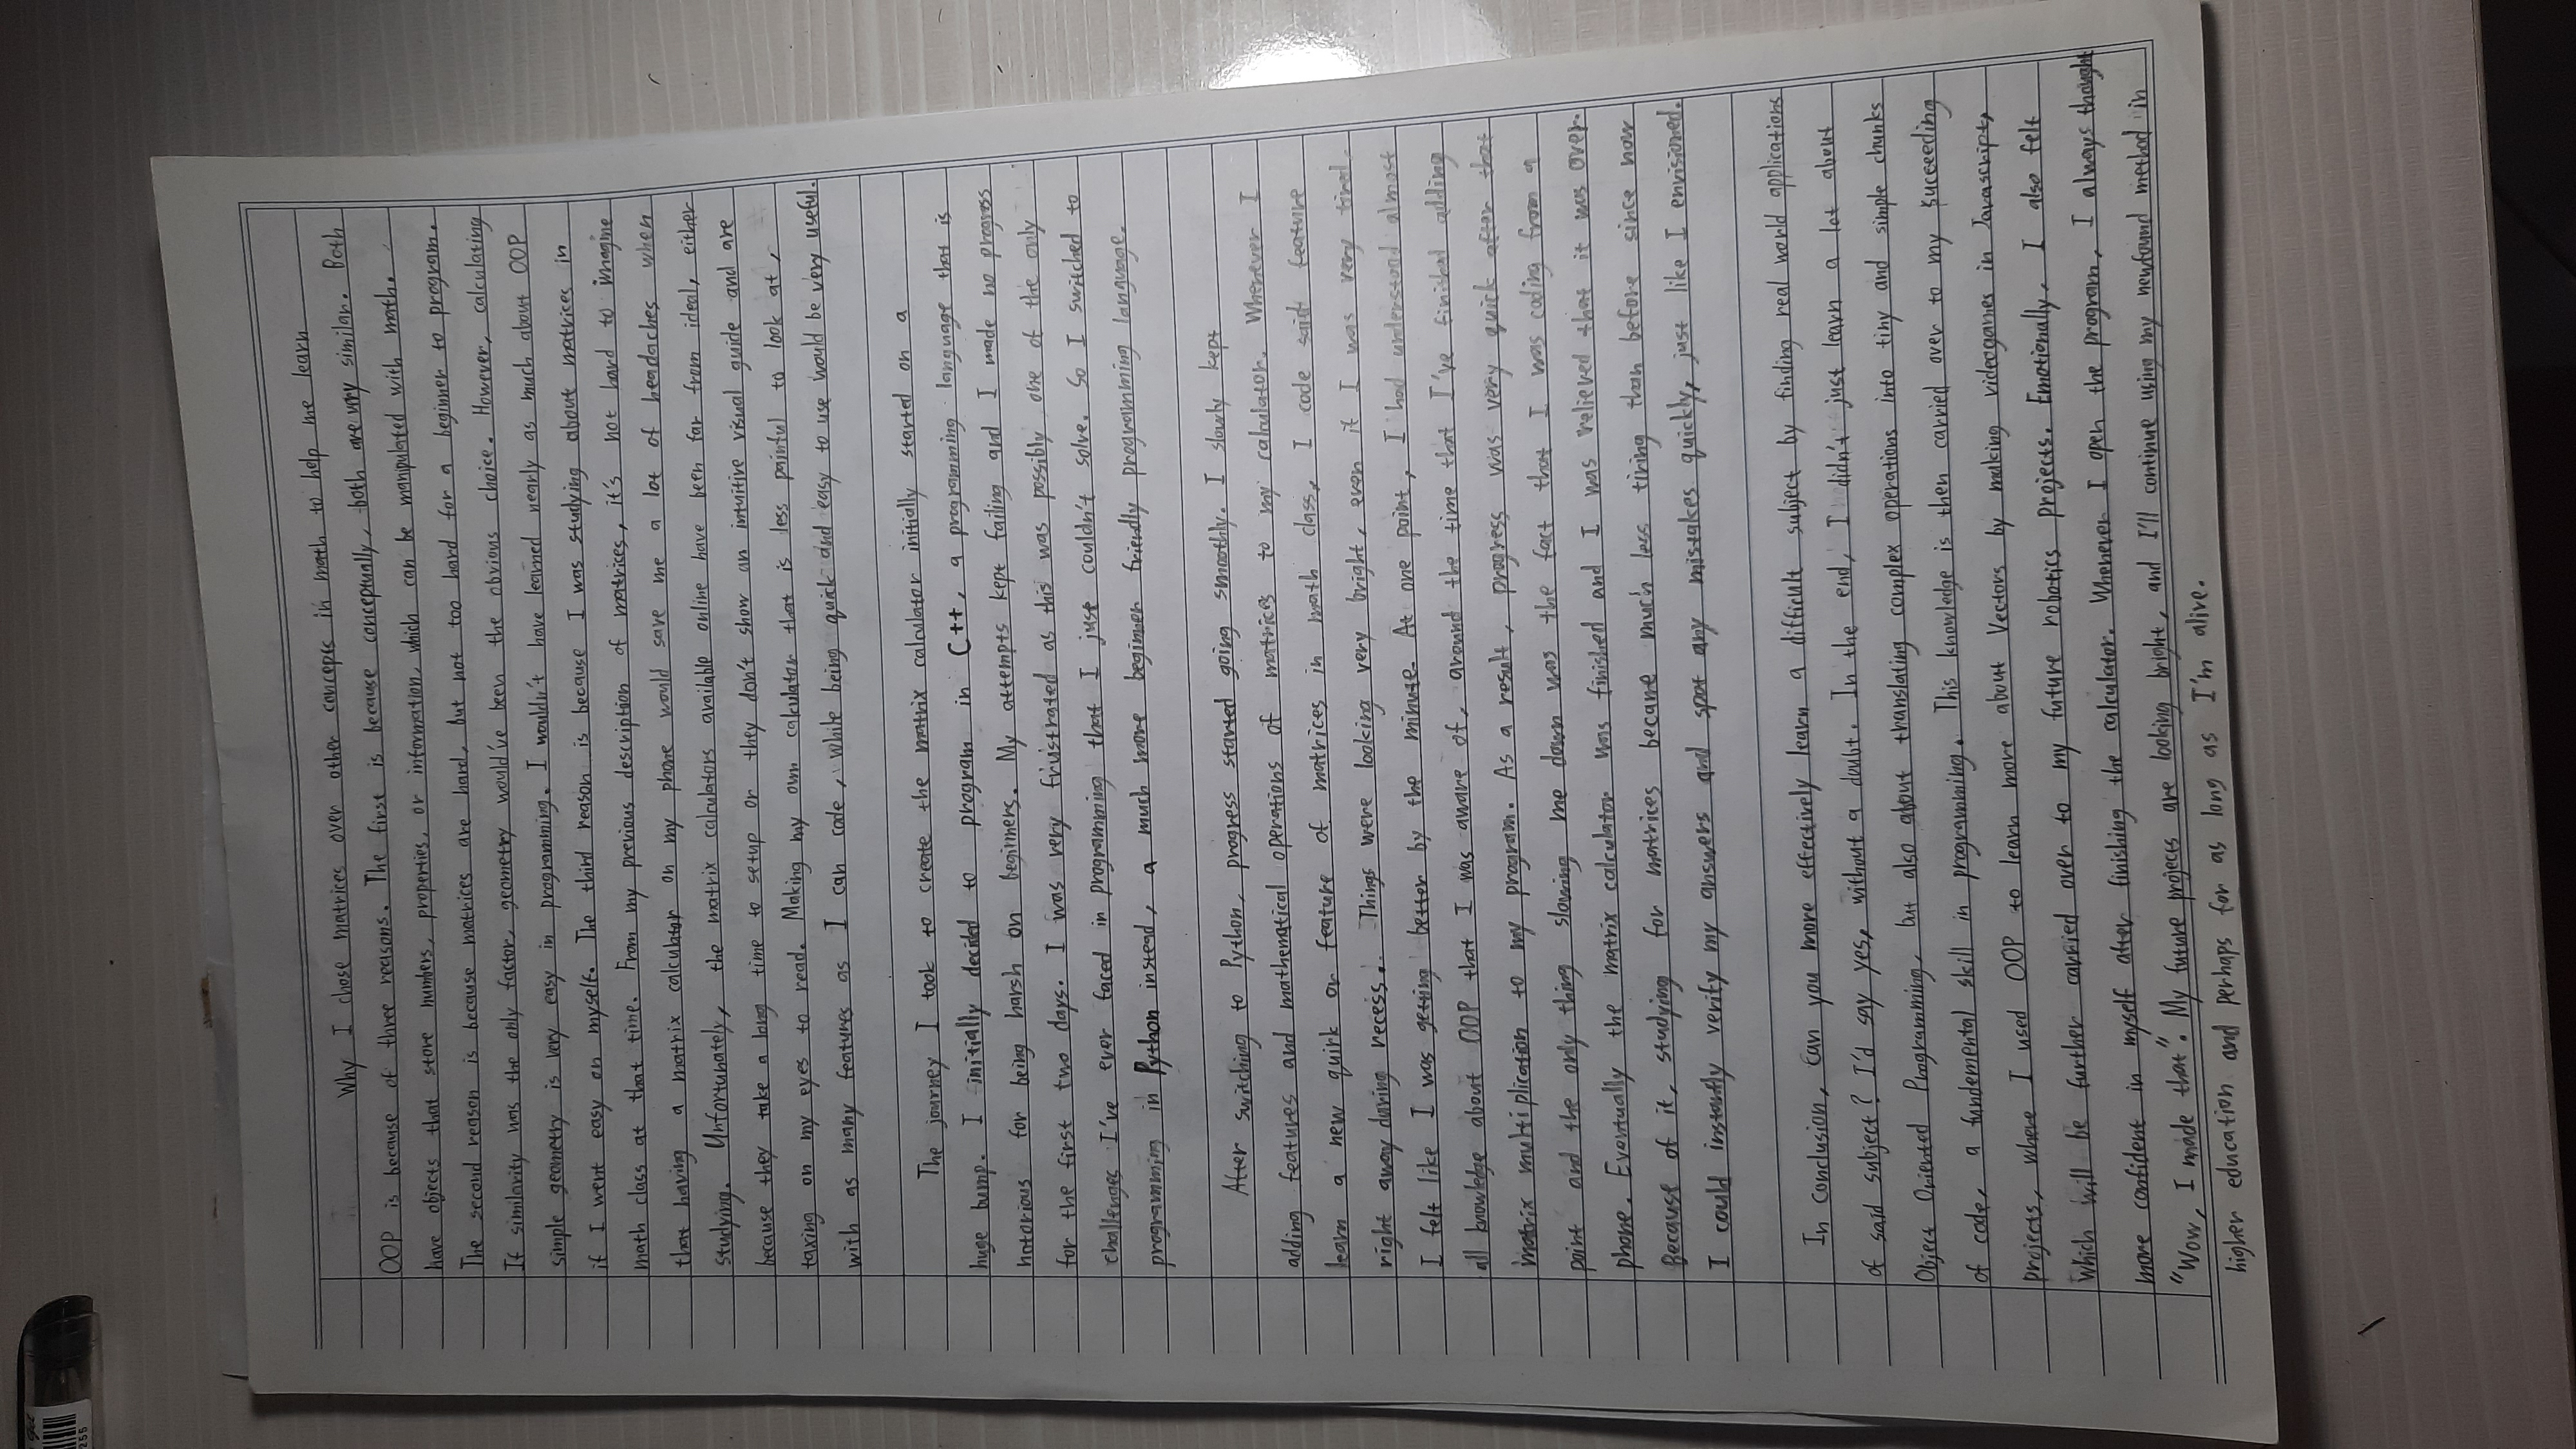 255
Why I chose matrices over other concepts in math to help me learn
OOP is because of three reasons. The first is because conceptually, both are very similar. Both
have objects that store numbers, properties, or information, which can be manipulated with math.
The second reason is because matrices are hard, but not too hard for a beginner to program.
If similarity was the only factor, geometry would've been the obvious choice. However, calculating
simple geometry is very easy in programming. I wouldn't have learned nearly as much about OOP
if I went easy on myself. The third reason is because I was studying about matrices in
math class at that time. From my previous description of matrices, it's not hard to imagine
that having a matrix calculator on my phone would save me a lot of headaches when
studying. Unfortunately, the matrix calculators available online have been far from ideal, either
because they take a long time to setup or they don't show an intuitive visual guide and are
taxing on my eyes to read. Making my own calculator that is less painful to look at,
with as many features as I can code, while being quick and easy to use would be very useful.
The journey I took to create the matrix calculator initially started on a
huge bump. I initially decided to program in C++, a programming language that is
notorious for being harsh on beginners. My attempts kept failing and I made no progress
for the first two days. I was very frustrated as this was possibly one of the only
challenges I've ever faced in programming that I just couldn't solve. So I switched to
programming in Python instead, a much more beginner friendly programming language.
After switching to Python, progress started going smoothly. I slowly kept
adding features and mathematical operations of matrices to my calculator. Whenever I
learn a new quirk or feature of matrices in math class, I code said feature
right away during recess. Things were looking very bright, even if I was very tired.
I felt like I was getting better by the minute. At one point, I had understand almost
all knowledge about OOP that I was aware of, around the time that I've finished adding
matrix multiplication to my program. As a result, progress was very quick after that
point and the only thing slowing me down was the fact that I was coding from a
phone. Eventually the matrix calculator was finished and I was relieved that it was over.
Because of it, studying for matrices became much less tiring than before since now
I could instantly verify my answers and spot any mistakes quickly, just like I envisioned.
In conclusion, can you more effectively learn a difficult subject by finding real world applications
of said subject? I'd say yes, without a doubt. In the end, I didn't just learn a lot about
Object Oriented Programming, but also about translating complex operations into tiny and simple chunks
of code, a fundemental skill in programming. This knowledge is then carried over to my succeeding
projects, where I used OOP to learn more about Vectors by making videogames in Javascript,
which will be further carried over to my future robotics projects. Emotionally, I also felt
more confident in myself after finishing the calculator. Whenever I open the program, I always thought
"Wow, I made that". My future projects are looking bright, and I'll continue using my newfound method in
higher education and perhaps for as long as I'm alive.